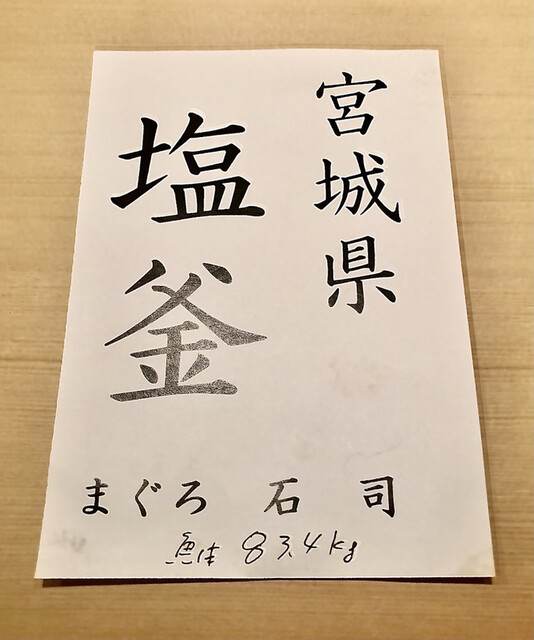 宮城県
塩釜
まぐろ 石司
魚体 83.4kg